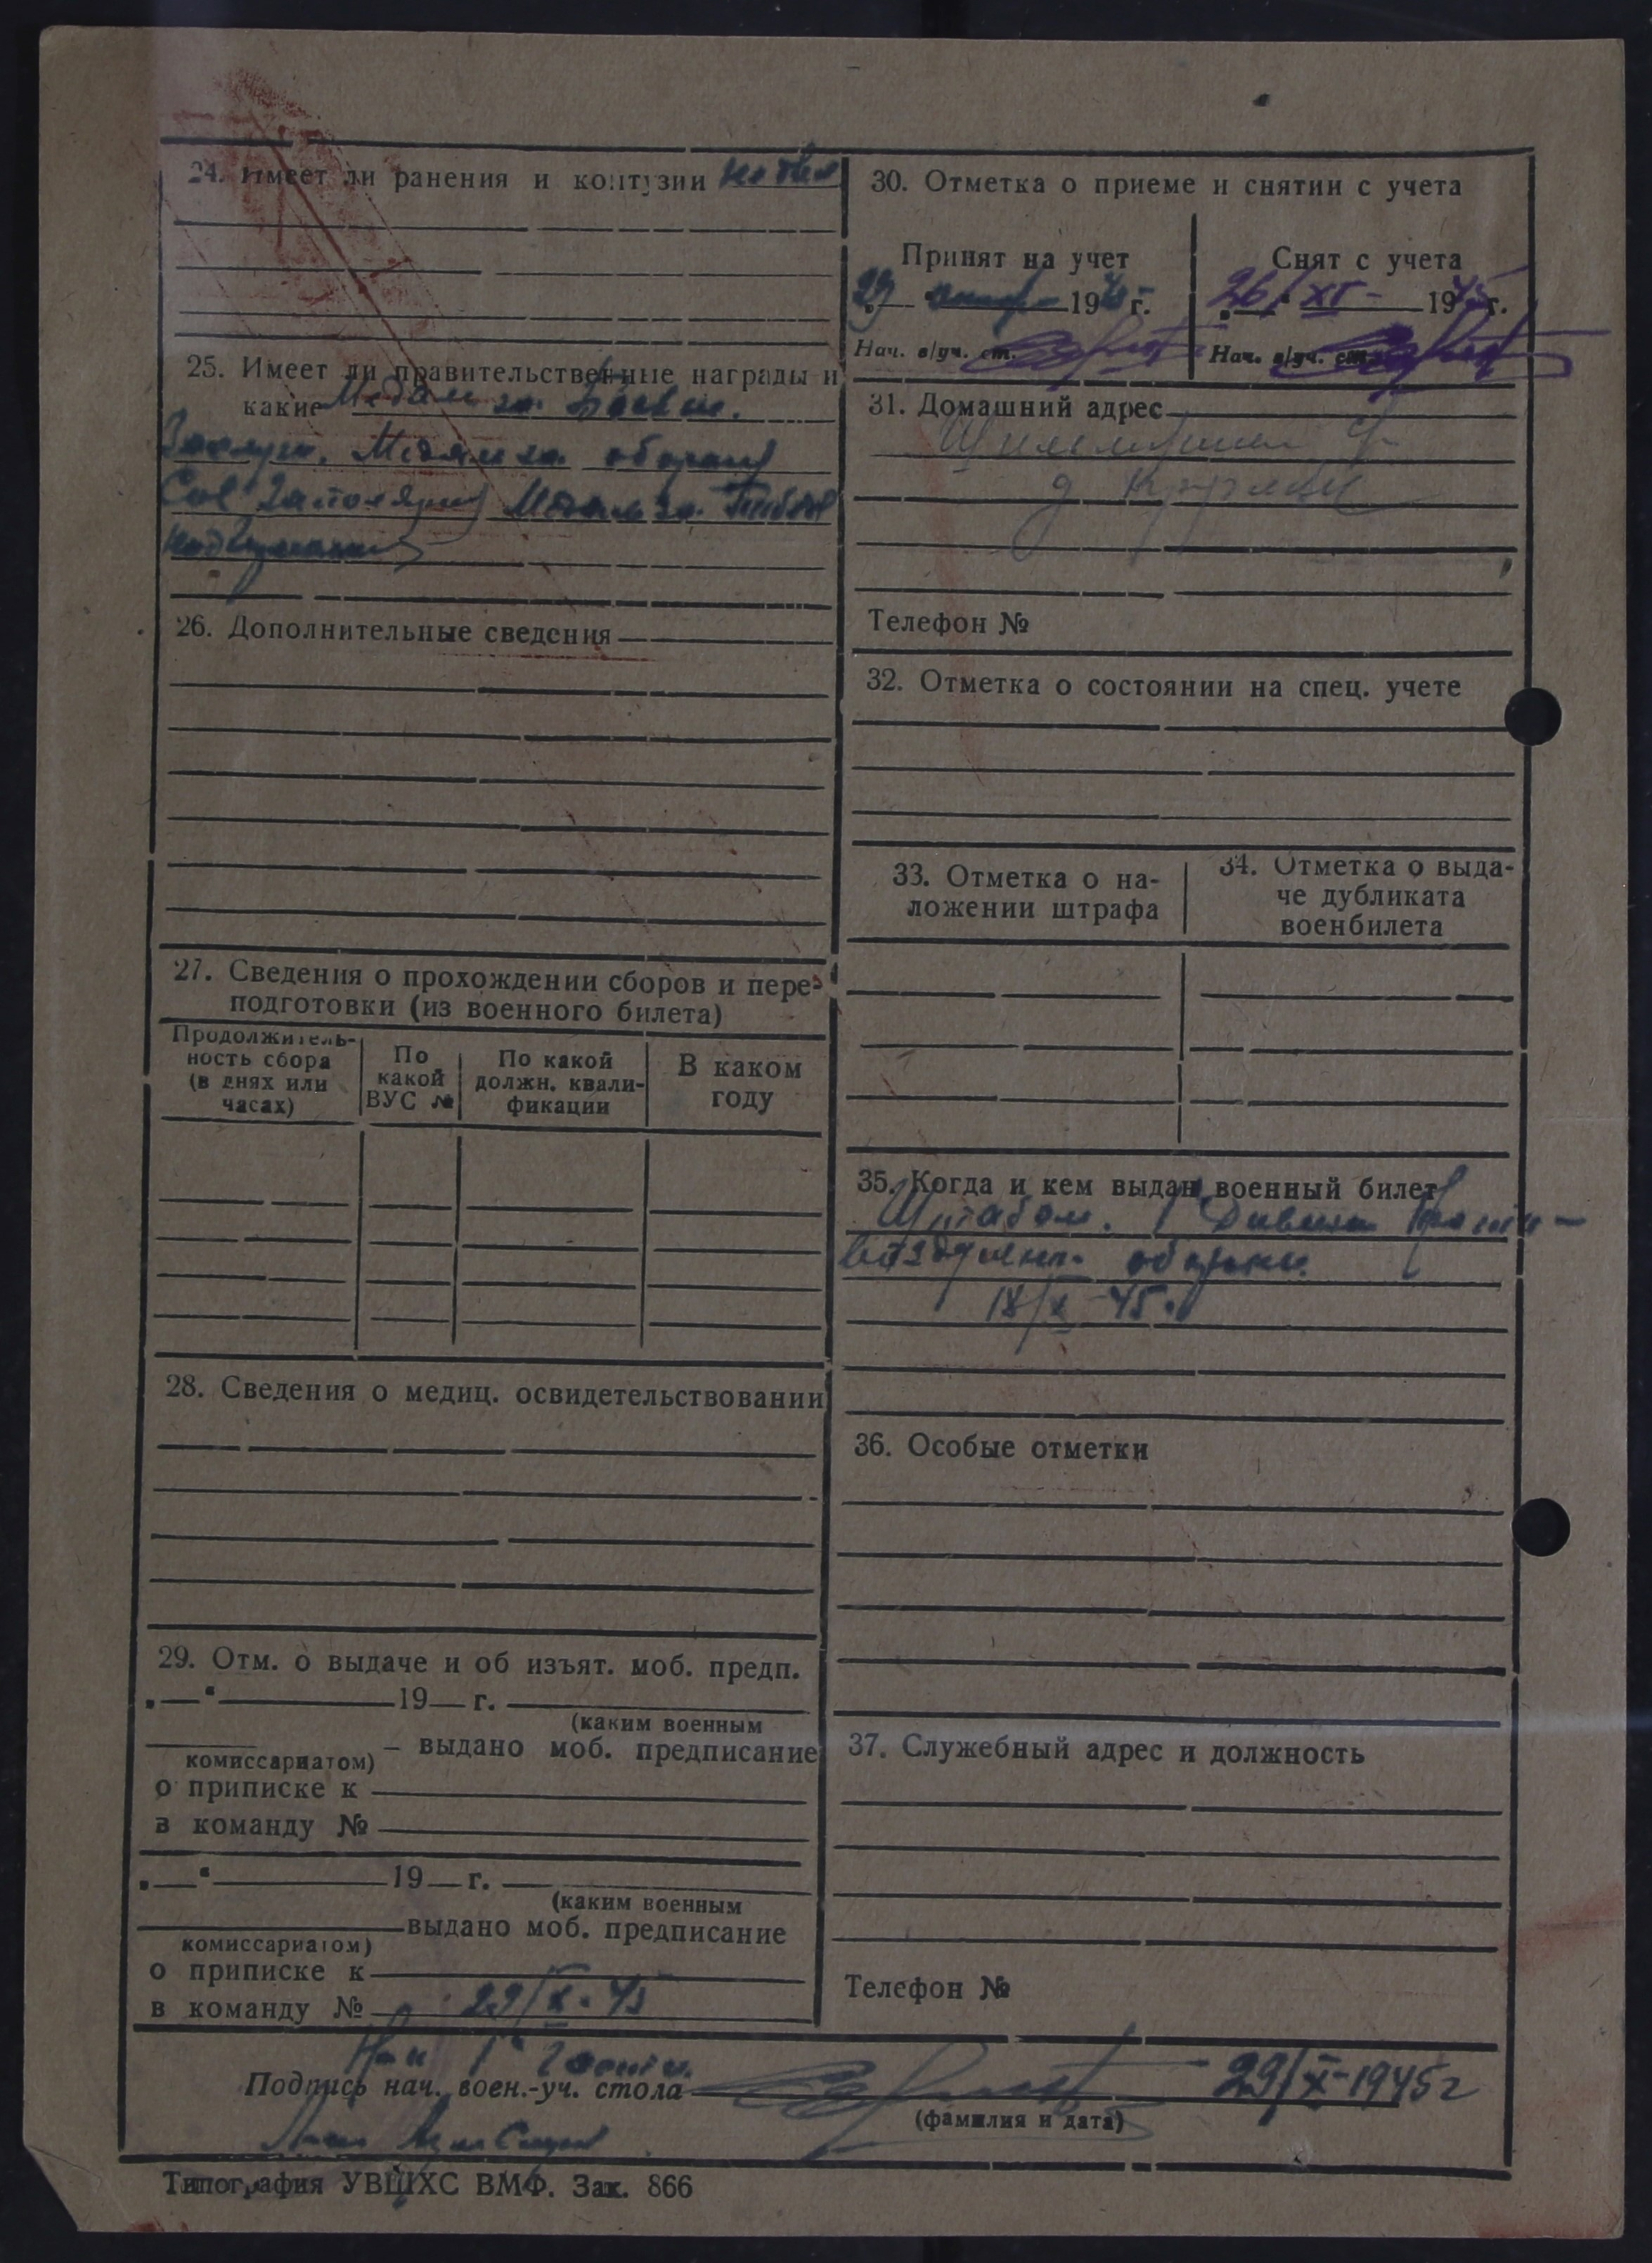 24. Имеет ли ранения и контузии не был
25. Имеет ли правительственные награды и
какие Медаль за боевые
Заслуги. Медаль за оборону
Сов Заполярья Медаль за Победу
над Германией
26. Дополнительные сведения
27. Сведения о прохождении сборов и пере-
подготовки (из военного билета)
Продолжитель-
ность сбора
(в днях или
часах)
По
какой
ВУС №
По какой
должн. квали-
фикации
В каком
году
28. Сведения о медиц. освидетельствовании
29. Отм. о выдаче и об изъят. моб. предп.
„ “ 19 г.
(каким военным
комиссариатом) – выдано моб. предписание
о приписке к
в команду №
„ “ 19 г.
(каким военным
выдано моб. предписание
комиссариатом)
о приписке к
в команду № 29/X-45
30. Отметка о приеме и снятии с учета
Принят на учет
29 1945 г.
Нач. в/уч. ст.
Снят с учета
26/XI- 1945 г.
Нач. в/уч. ст.
31. Домашний адрес
Телефон №
32. Отметка о состоянии на спец. учете
33. Отметка о на-
ложении штрафа
34. Отметка о выда-
че дубликата
военбилета
35. Когда и кем выдан военный билет
Штабом. 1 Дивизии
воздушн. обороны.
18/X-45.
36. Особые отметки
37. Служебный адрес и должность
Телефон №
Нач 1
Подпись нач. воен.-уч. стола 29/X-1945г
(фамилия и дата)
Типография УВЦХС ВМФ. Зак. 866